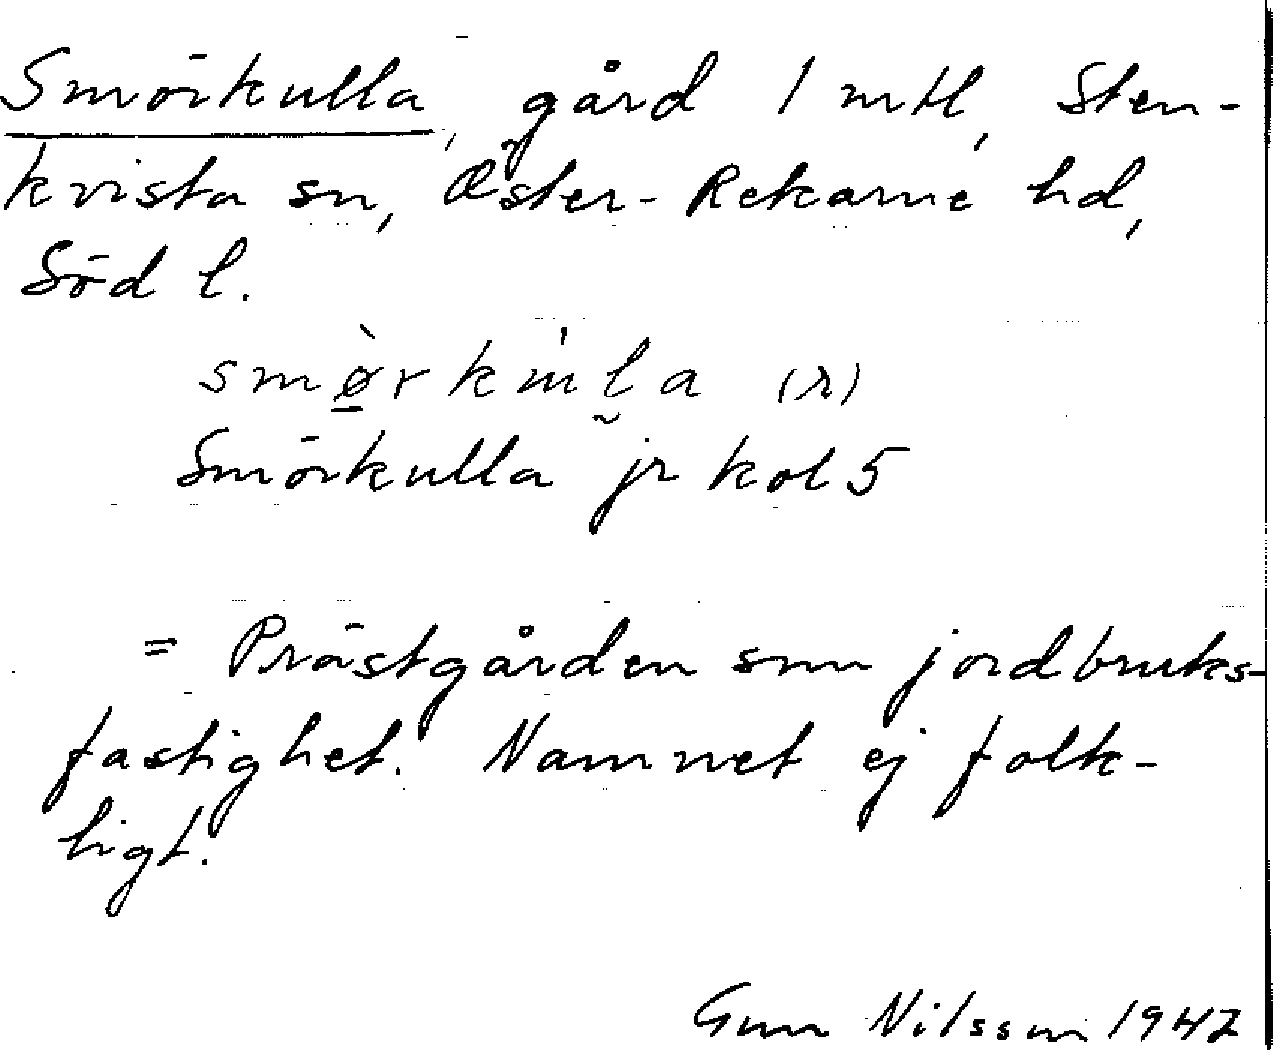 Smörkulla, gård 1 mtl, Sten-
kvista sn, Öster-Rekarne hd,
Söd l.
smø̀rkùla (r)
Smörkulla jr kol 5
= Prästgården som jordbruks-
fastighet. Namnet ej folk-
ligt.
Gun Nilsson 1947